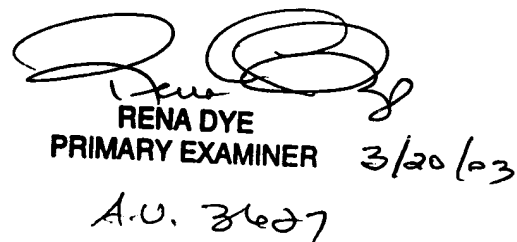 Rena Dye
RENA DYE
PRIMARY EXAMINER 3/20/03
A.U. 3627